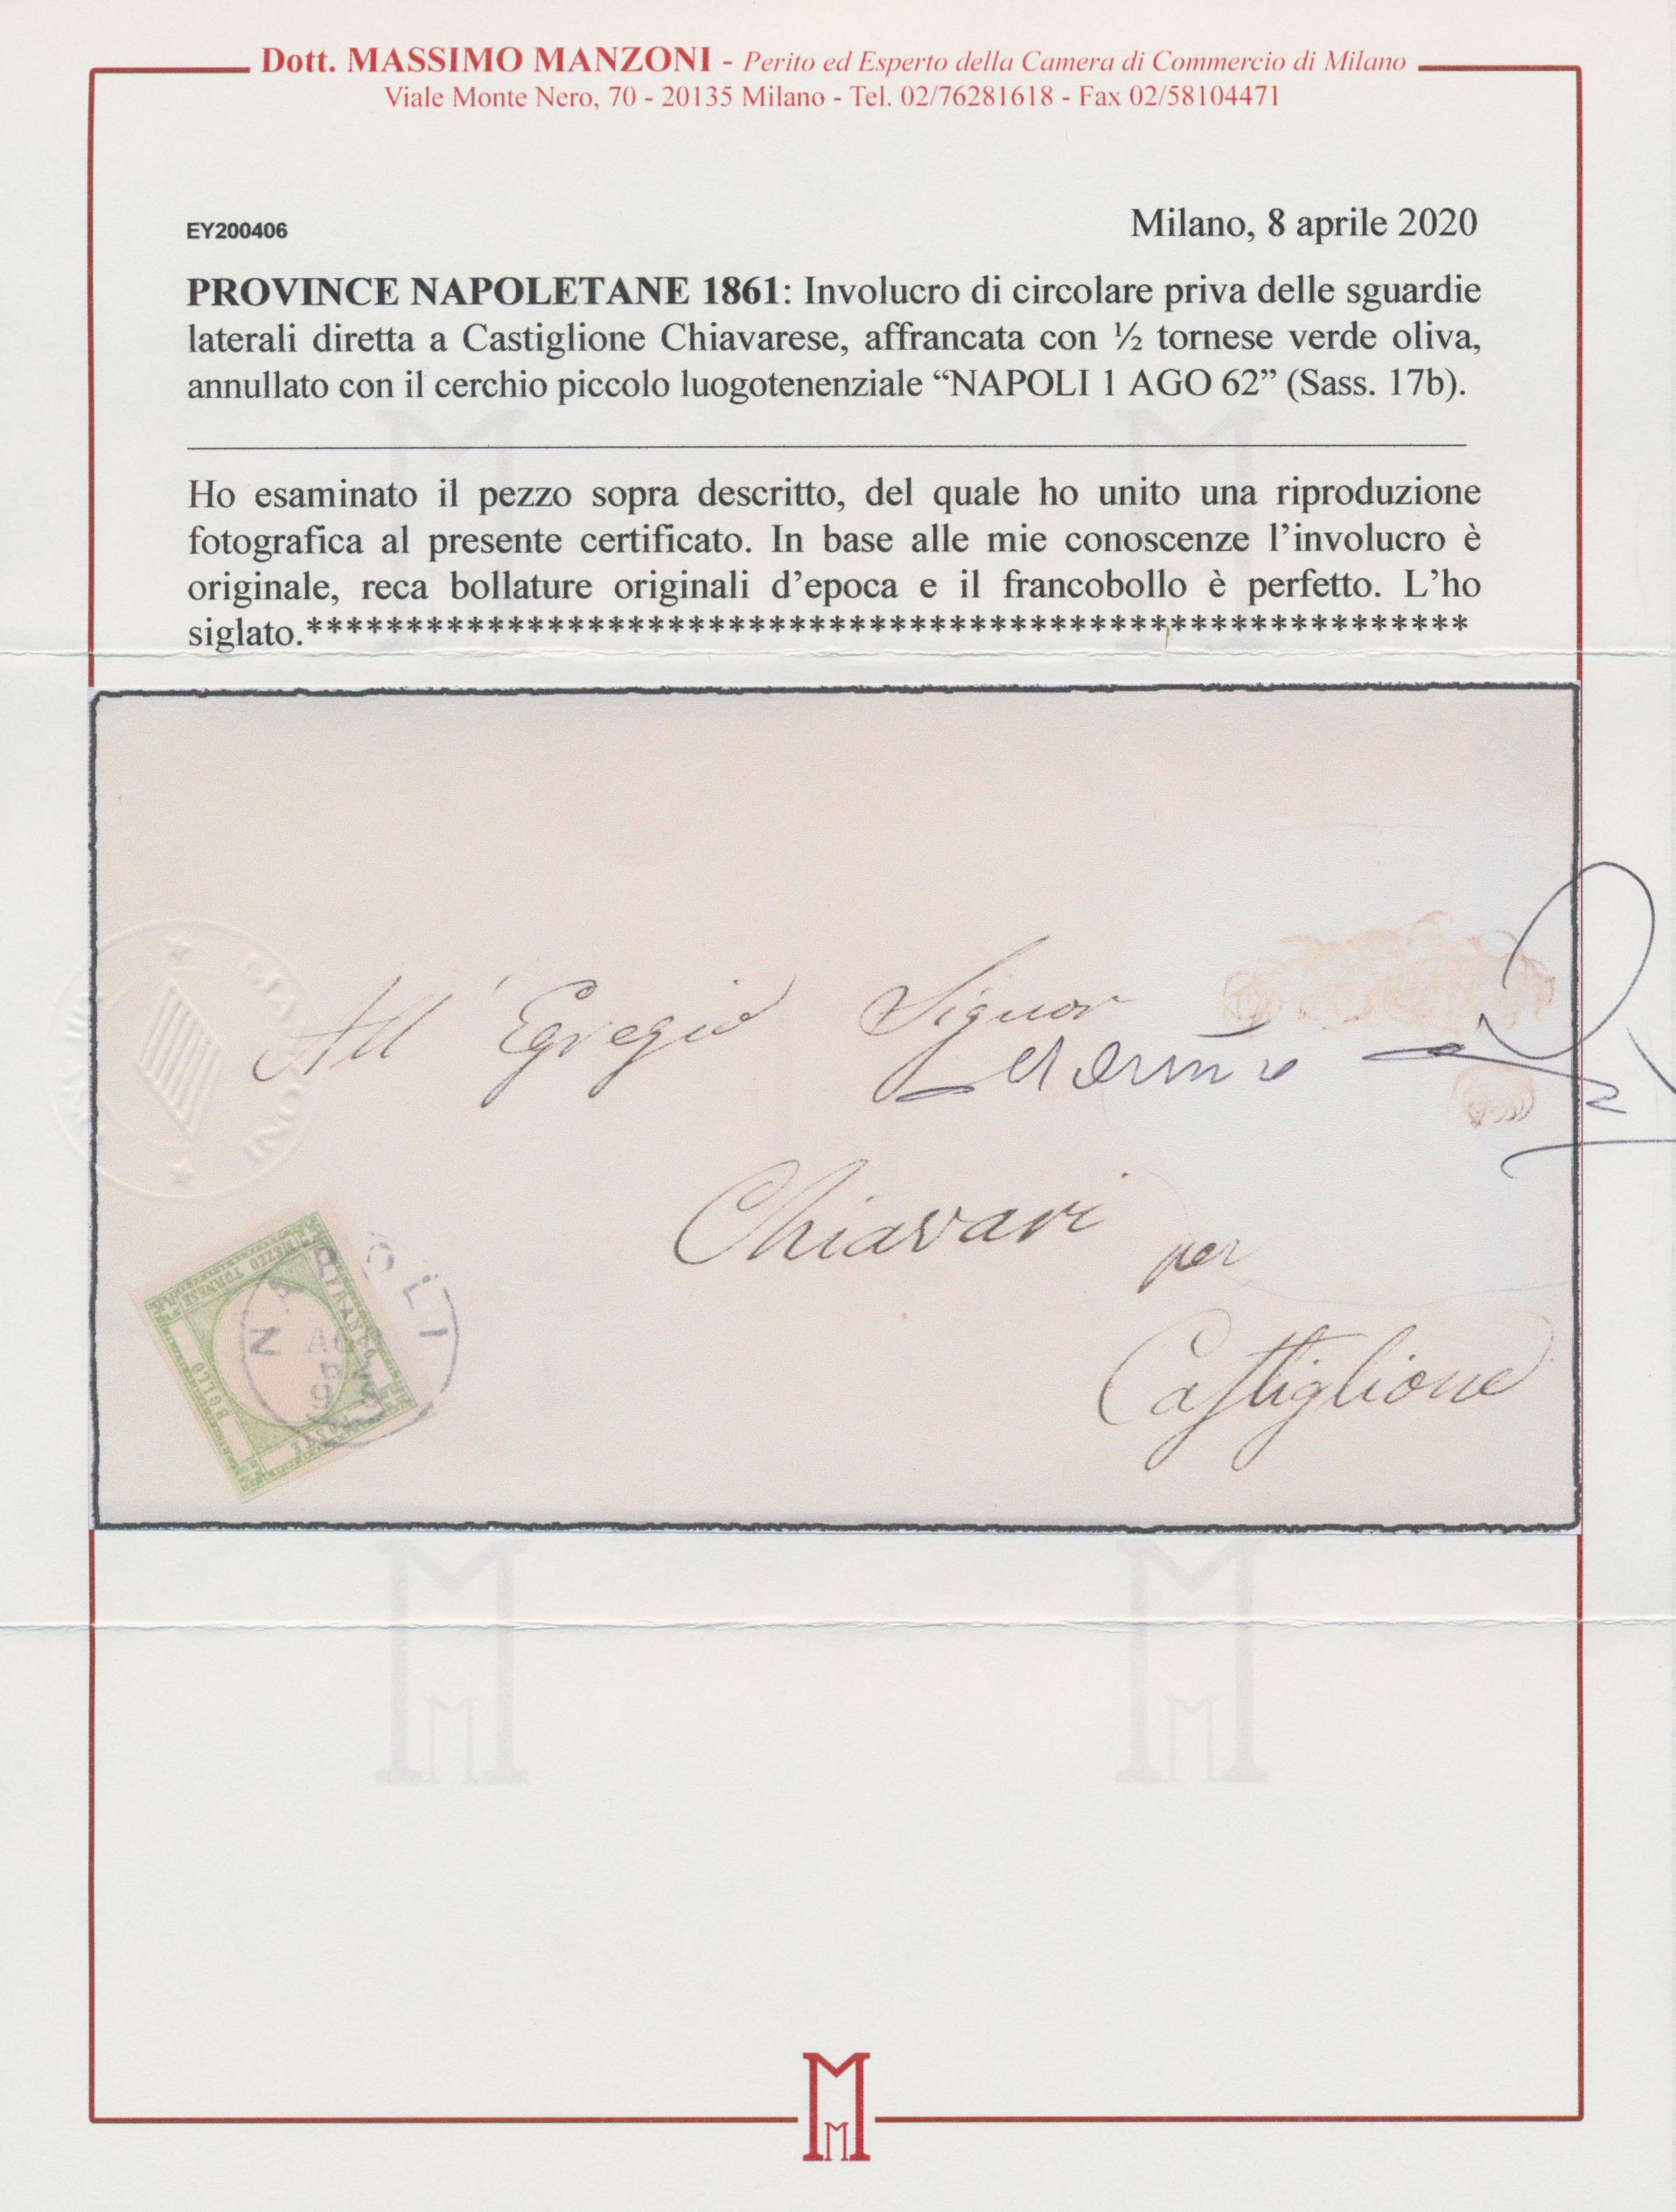 Dott. MASSIMO MANZONI - Perito ed Esperto della Camera di Commercio di Milano
Viale Monte Nero, 70 - 20135 Milano - Tel. 02/76281618 - Fax 02/58104471
EY200406
Milano, 8 aprile 2020
PROVINCE NAPOLETANE 1861: Involucro di circolare priva delle sguardie
laterali diretta a Castiglione Chiavarese, affrancata con ½ tornese verde oliva,
annullato con il cerchio piccolo luogotenenziale “NAPOLI 1 AGO 62” (Sass. 17b).
Ho esaminato il pezzo sopra descritto, del quale ho unito una riproduzione
fotografica al presente certificato. In base alle mie conoscenze l’involucro è
originale, reca bollature originali d’epoca e il francobollo è perfetto. L’ho
siglato.**********************************************************
All' Egregio Signor
Chiavari
per
Castiglione
MANZONI
NAPOLI
MEZZO TORNESE
FRANCO
BOLLO
POSTE
M
M